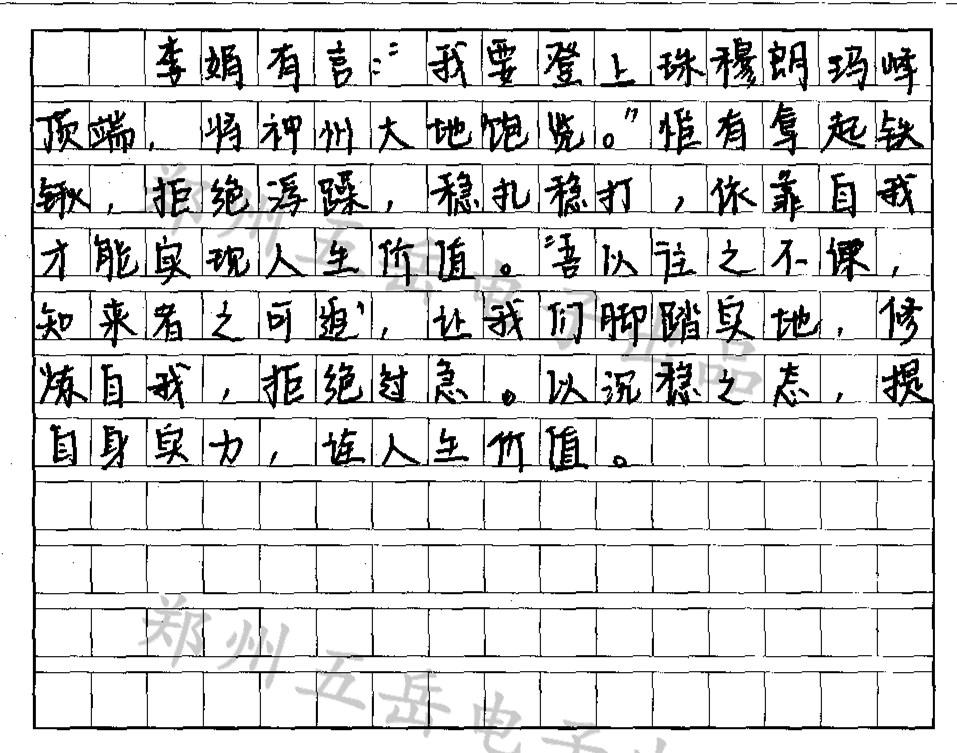 李娟有言：“我要登上珠穆朗玛峰
顶端，将神州大地饱览。”惟有拿起铁
锹，拒绝浮躁，稳扎稳打，依靠自我
才能实现人生价值。“悟以往之不谏，
知来者之可追”，让我们脚踏实地，修
炼自我，拒绝过急。以沉稳之态，提
自身实力，连人生价值。
郑州五岳电子正品
郑州五岳电子